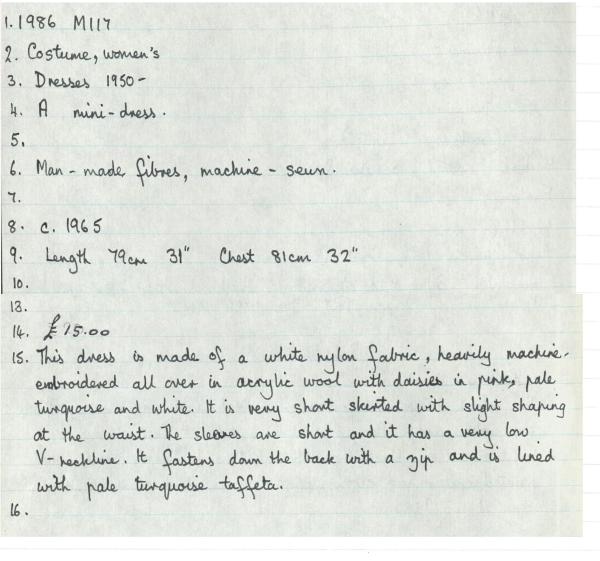 1. 1986 M117
2. Costume, women's
3. Dresses 1950-
4. A mini-dress.
5.
6. Man-made fibres, machine-sewn.
7.
8. c. 1965
9. Length 79cm 31" Chest 81cm 32"
10.
13.
14. £15.00
15. This dress is made of a white nylon fabric, heavily machine-
embroidered all over in acrylic wool with daisies in pink, pale
turquoise and white. It is very short skirted with slight shaping
at the waist. The sleeves are short and it has a very low
V-neckline. It fastens down the back with a zip and is lined
with pale turquoise taffeta.
16.